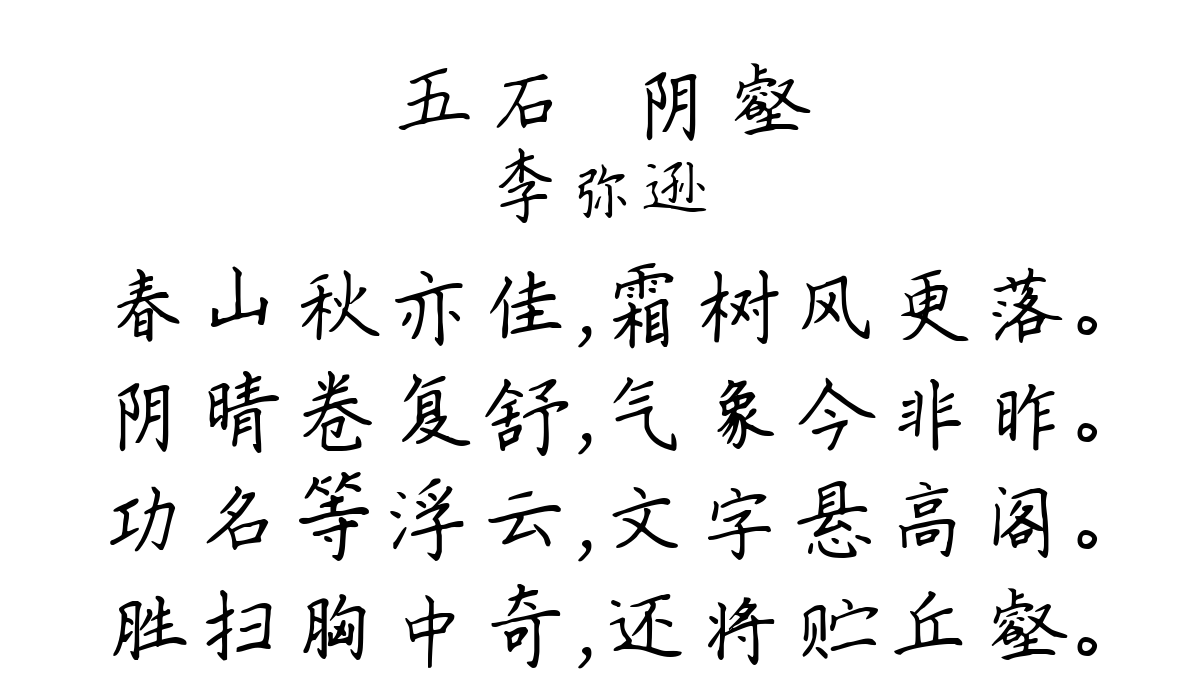 五石 阴壑
李弥逊
春山秋亦佳,霜树风更落。
阴晴卷复舒,气象今非昨。
功名等浮云,文字悬高阁。
胜扫胸中奇,还将贮丘壑。